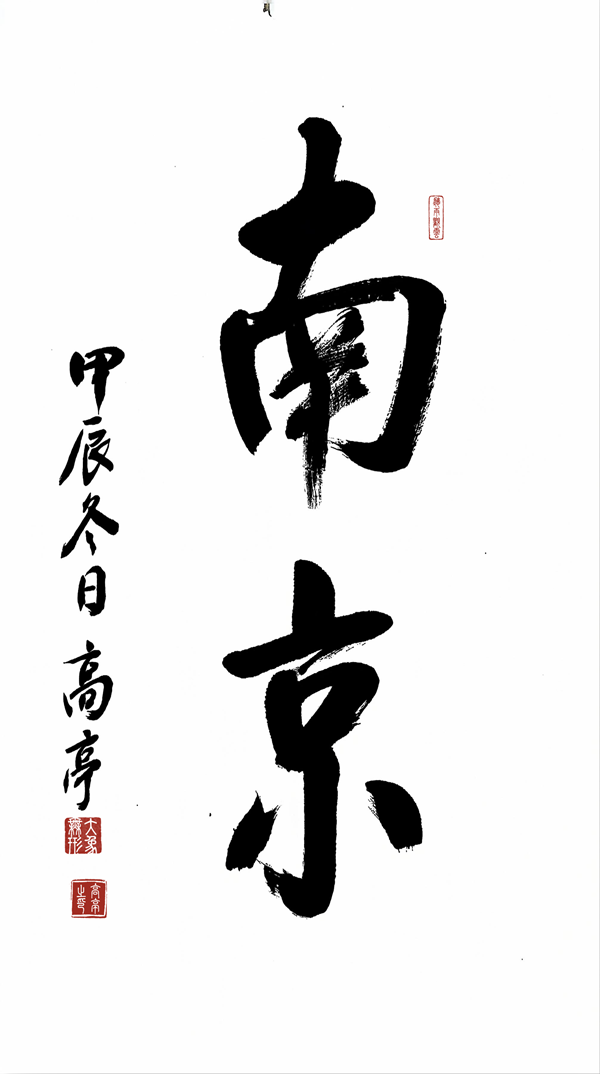 南京
甲辰冬日高亭
大象無形
高亭之印